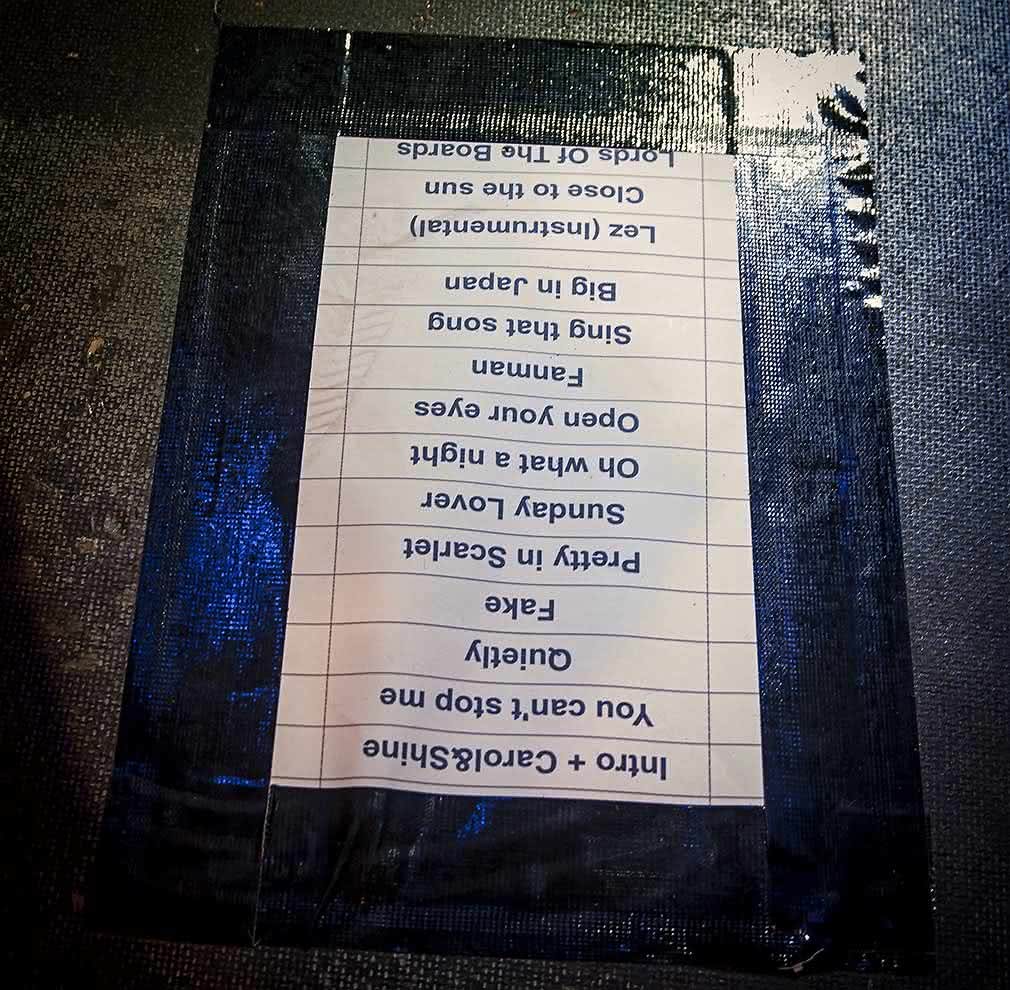 Intro + Carol&Shine
You can't stop me
Quietly
Fake
Pretty in Scarlet
Sunday Lover
Oh what a night
Open your eyes
Fanman
Sing that song
Big in Japan
Lez (Instrumental)
Close to the sun
Lords Of The Boards